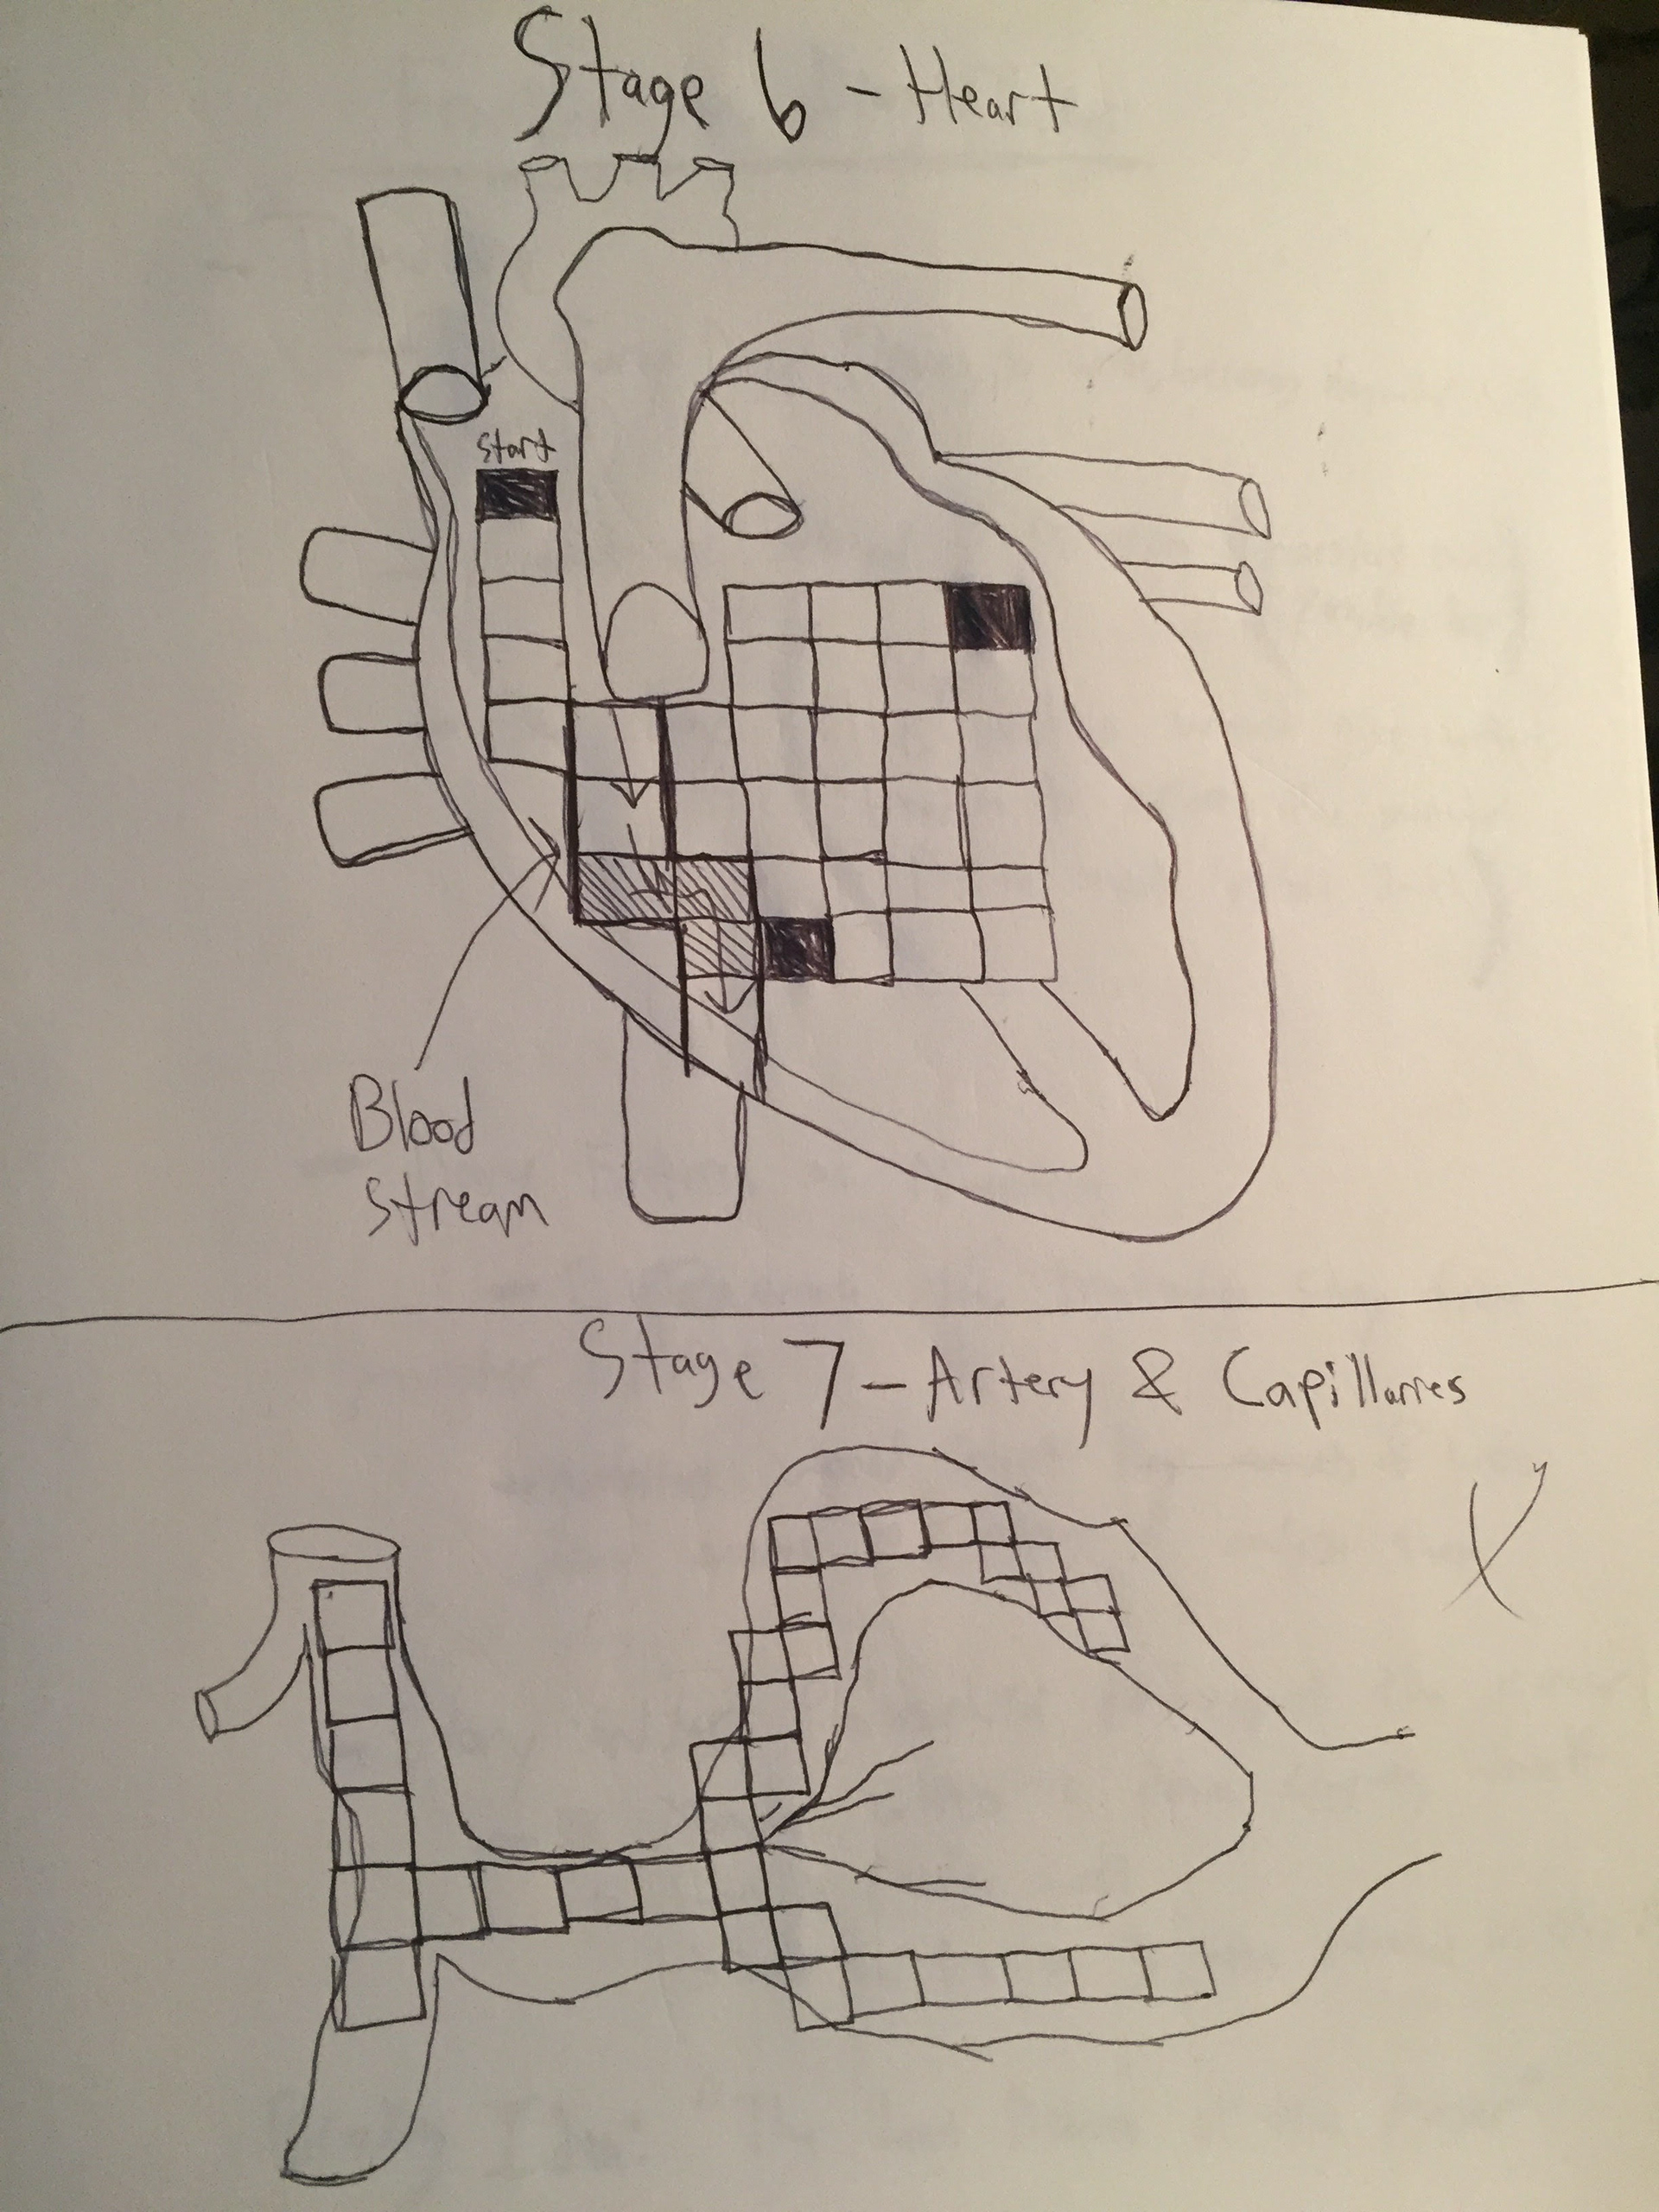 Stage 6 - Heart
Start
Blood
Stream
Stage 7 - Artery & Capillarries